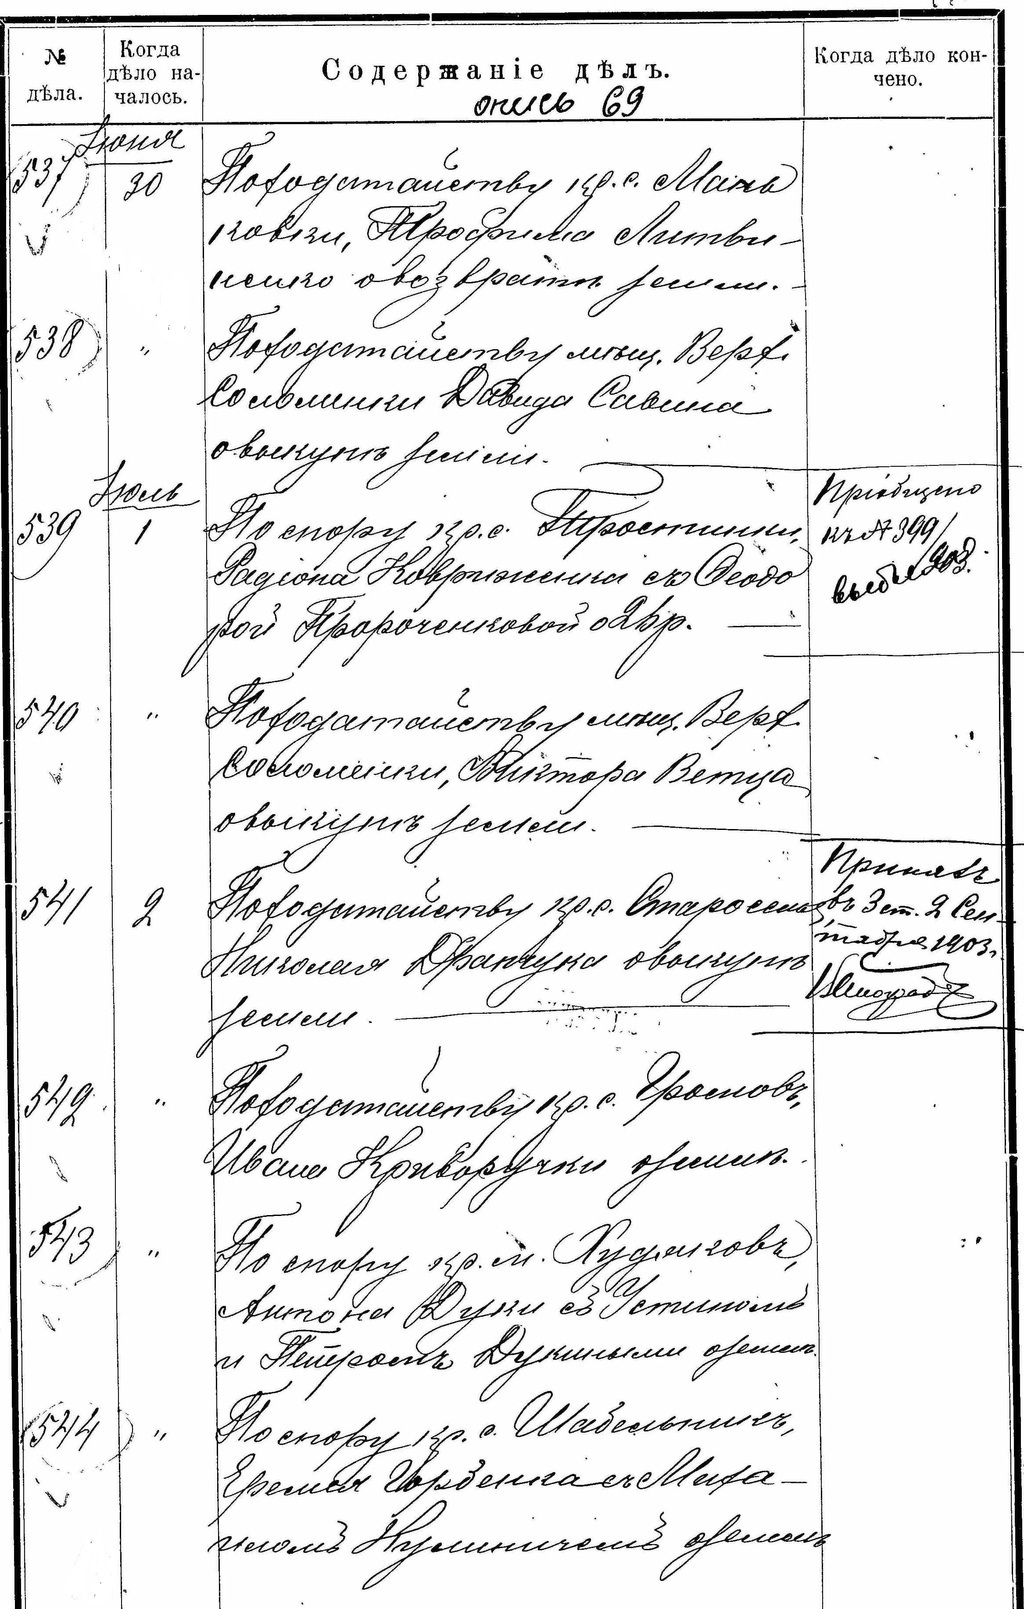 № дѣла.
Когда дѣло на-
чалось.
Содержаніе дѣлъ.
Когда дѣло кон-
чено.
опись 69
Іюня
537
30
По ходатайству кр. с. Мань
ковки, Трофима Литви-
ненко о возвратѣ земли.-
538
"
По ходатайству мѣщ. Верх.
Соломинки Давида Савина
о выкупѣ земли.
Іюль
539
1
По спору кр. с. Тростинки,
Радіона Ковриженка съ Феодо
рой Пророченковой о 2 кр.
Пріобщено
къ № 399/
903.
540
"
По ходатайству мѣщ. Верх.
Соломенки, Виктора Ветца
о выкупѣ земли.
541
2
По ходатайству кр. с. Староселья
Николая Дранчука о выкупѣ
земли.
Принялъ
въ 3 ст. 2 Сен-
тября 1903 г.
542
"
По ходатайству кр. с. Громовъ,
Ивана Криворучки о землѣ.
543
"
По спору кр. м. Худяковъ,
Антона Дуки съ Устиномъ
и Петромъ Дукиными о землѣ.
544
"
По спору кр. с. Шабельникъ,
Еремѣя Горбенка съ Миха-
иломъ Кулиничемъ о землѣ